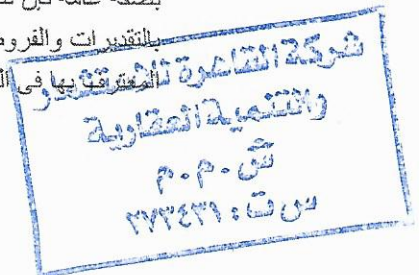 بصفة عامة فإن
بالتقديرات والفروض
المعترف بها فى ال
شركة القاهرة للاستثمار
والتنمية العقارية
ش.م.م
س ت: ٣٧٣٤٣١